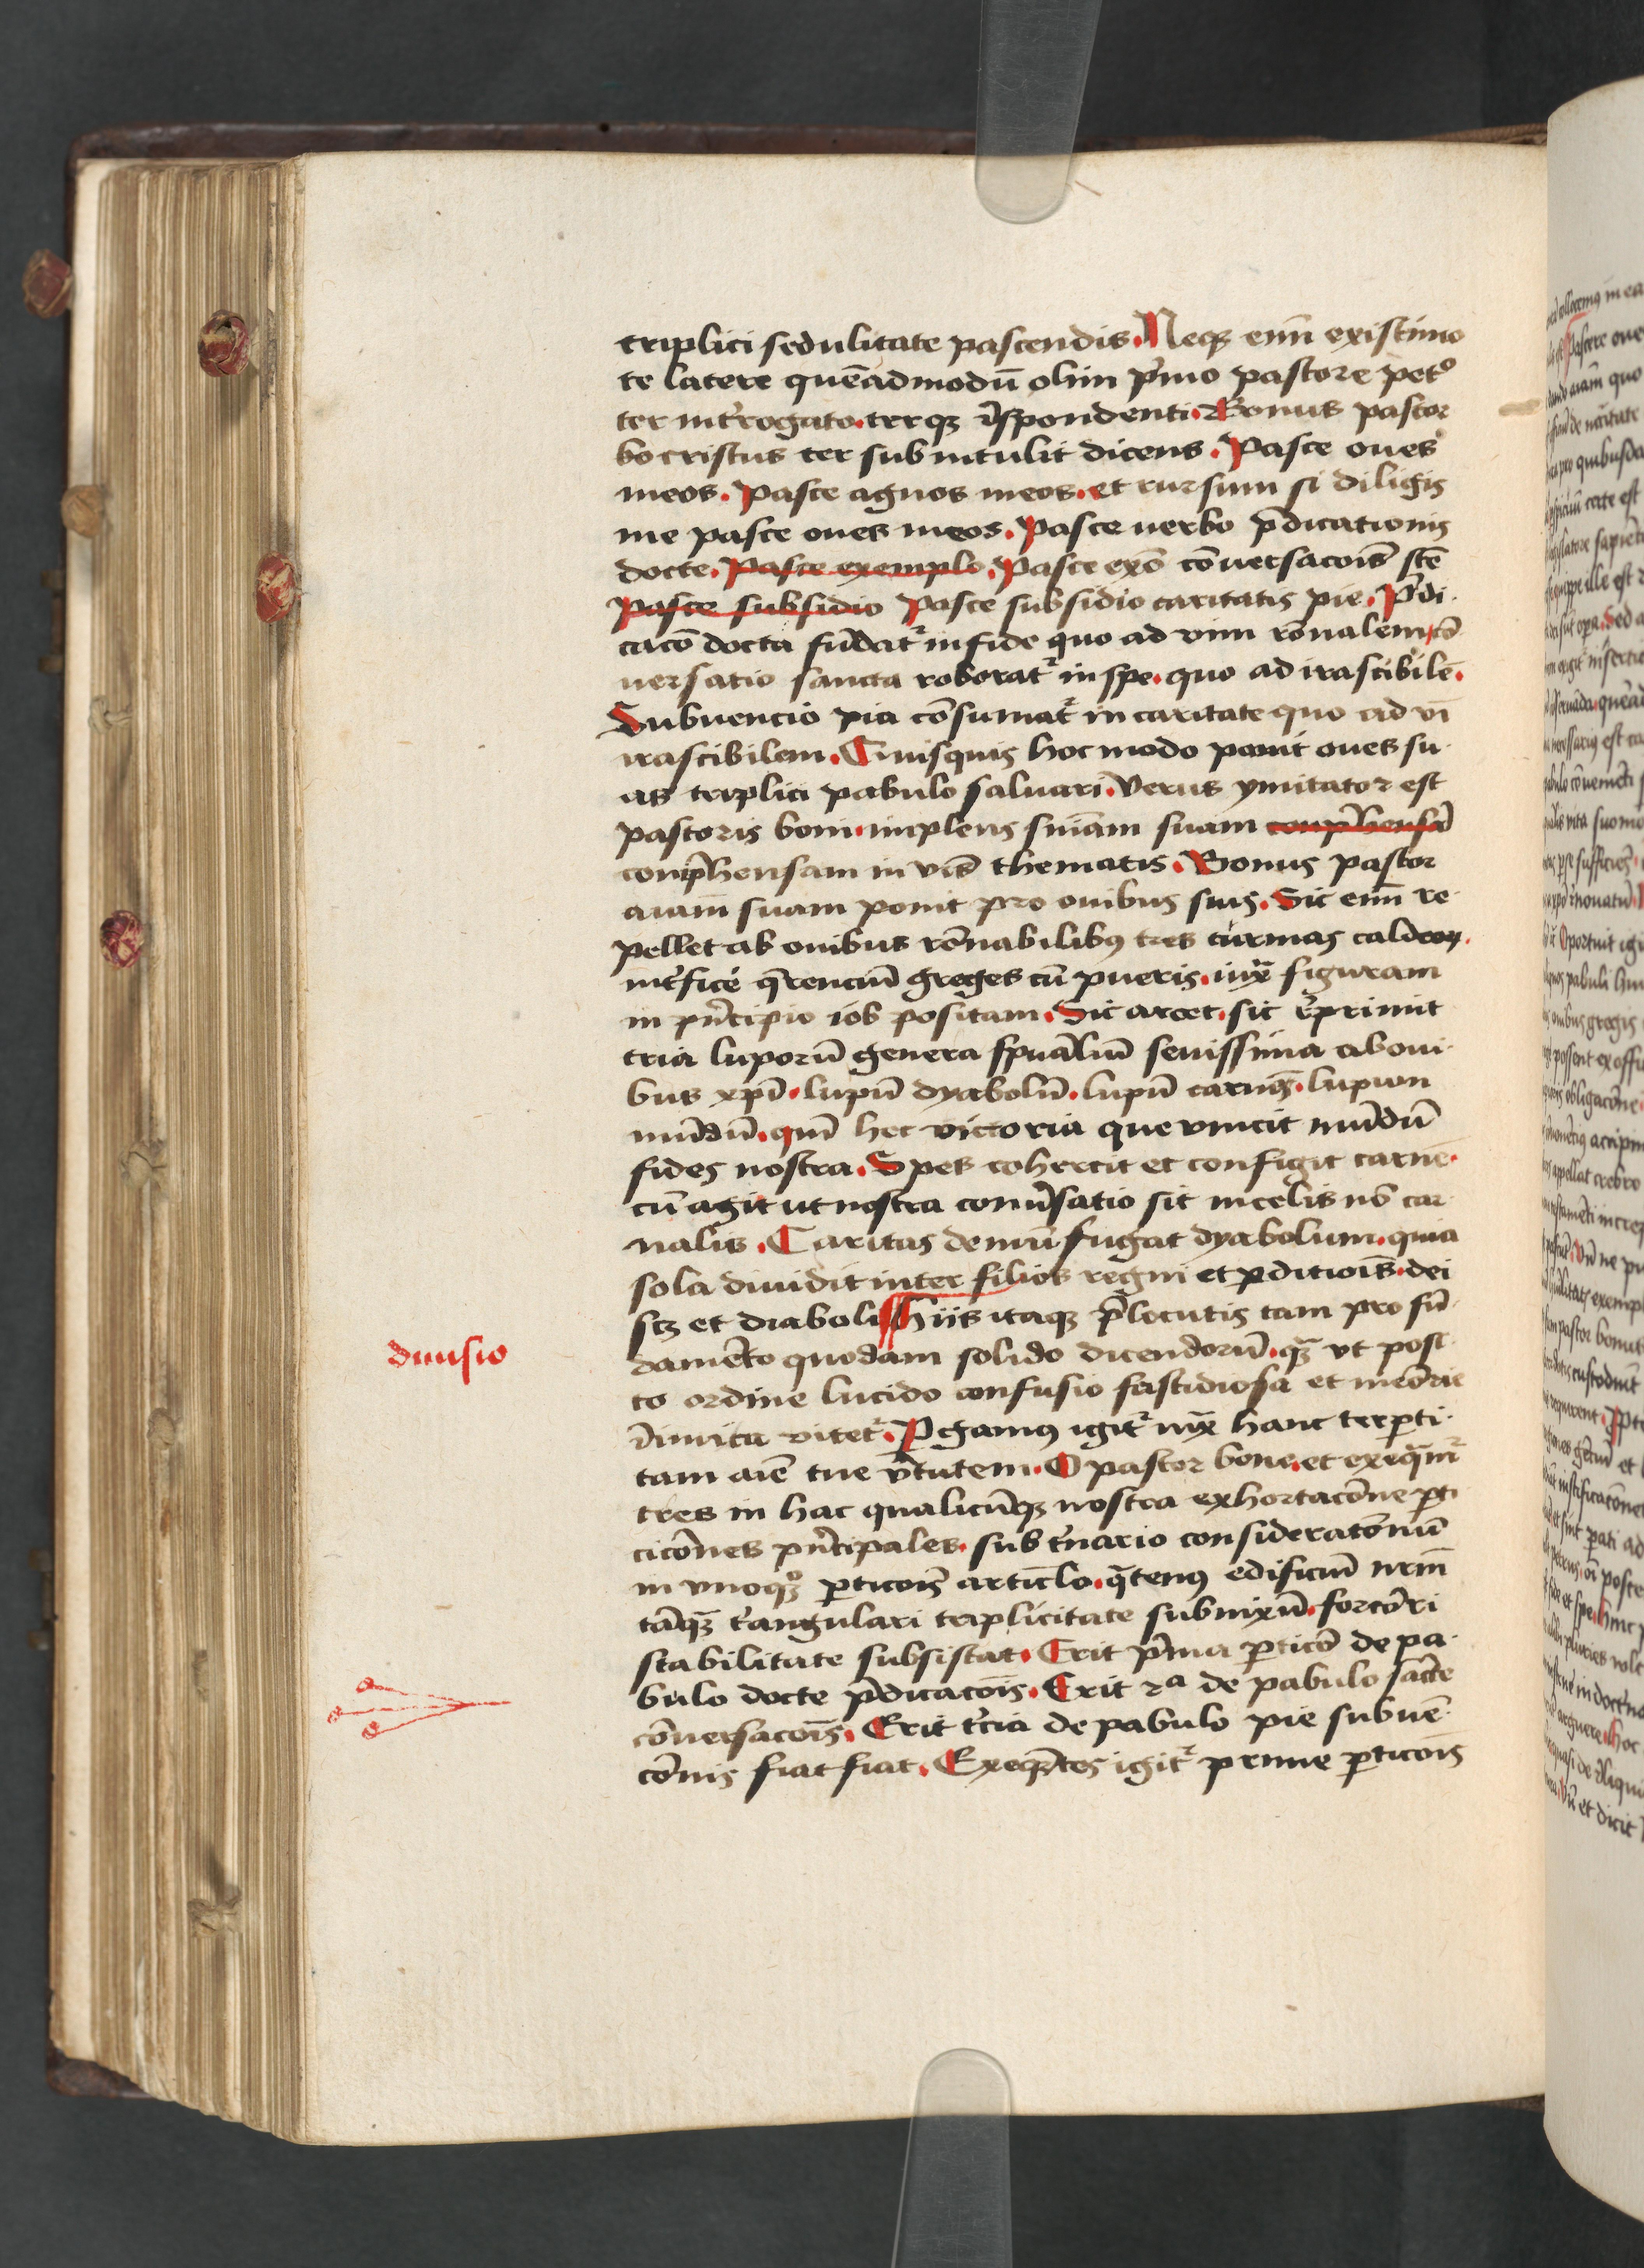 triplici sedulitate pascendis. Neqꝫ enī existimo
te latere quēadmodū olim p̄mo pastore petº
ter int̄rogato. terqꝫ r̄spondenti. Bonus pastor
ter sub intulit dicens. Pasce oues
meos. Pasce agnos meos. et rursum si diligis
me pasce oues meos. Pasce uerbo p̄dicationis
docte. Pasce exemplo. Pasce exō cōuersacōis sc̄e
Pasce subsidio Pasce subsidio caritatis pie. P̄di
cacō docta fūdat᷑ in fide quo ad vim rōnalem. cō
uersatio sancta roborat᷑ in spe. quo ad irascibilē.
Subuencio pia cōsumat᷑ in caritate quo ad vī
irascibilem. Quisquis hoc modo ponit oues su
as triplici pabulo saluari. Verus ymitator est
pastoris boni. implens sn̄iam suam conp̄hensā
conp̄hensam in v̄bis thematis. Bonus pastor
aīam suam ponit pro ouibus suis. Sic enī re
pellet ab ouibus rōnabilibꝰ tres turmas caldeoꝝ.
int̄ficē q̄renciū greges cū pueris. iuxᷓ figuram
in pn̄cipio iob positam. Sic arcet. sic rep̄rimit
tria luporū genera spūaliū seuissima ab oui
bus xp̄i. lupū dyabolū. lupū carnis. lupum
mūdū. qm̄ hec victoria que vincit mūdū
fides nostra. Spes cohercit et configit carnē.
cū agit ut nostra conūsatio sit in celis nō car
nalis. Caritas demū fugat dyabolum. quia
sola diuidit inter filios regni et ꝑditiōis. dei
scꝫ et diaboli Hiis itaqꝫ p̄locutis tam pro fū
damēto quodam solido dicendorū. qꝫ vt posi
to ordine lucido confusio fastidiosa et meōrie
inimica vitet᷑. Pergamꝰ igit᷑ iuxᷓ hanc terꝑti
tam aīe tue v̄tutem. O pastor bone. et exeq̄m᷑
tres in hac qualicūqꝫ nostra exhortacōne ꝑti
cicōnes pn̄cipales. sub t̄nario consideratōnū
in vnoqꝫº ꝑticōis articulo. q̄tenꝰ edificiū nr̄m
tāqꝫ t̄angulari triplicitate subnixū. forcōri
stabilitate subsistat. Erit p̄ma ꝑticō de pa
bulo docte p̄dicacōis. Erit 2ª de pabulo sācte
cōuersacōis. Erit t̄cia de pabulo pie subuē
cōnis fiat fiat. Exeqn̄tes igit᷑ prime ꝑticōis
diuisio